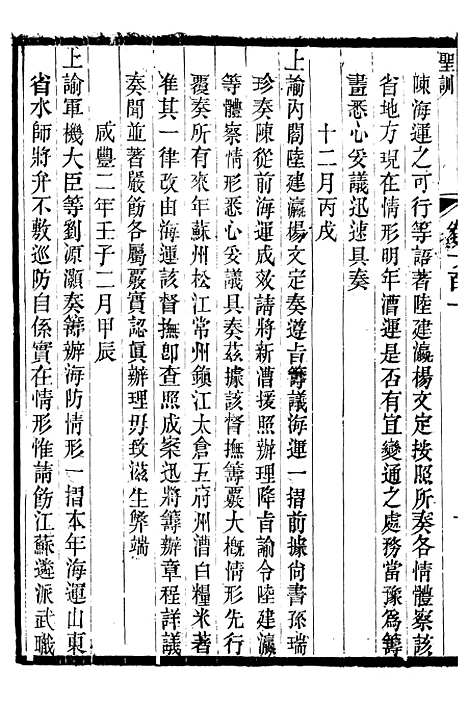 聖訓
陳海運之可行等語著陸建瀛楊文定按照所奏各情體察該
省地方現在情形明年漕運是否有宜變通之處務當豫爲籌
畫悉心妥議迅速具奏
十二月丙戌
上諭內閣陸建瀛楊文定奏遵旨籌議海運一摺前據尚書孫瑞
珍奏陳從前海運成效請將新漕援照辦理降旨諭令陸建瀛
等體察情形悉心妥議具奏茲據該督撫籌覈大概情形先行
覆奏所有來年蘇州松江常州鎭江太倉五府州漕白糧米著
准其一律改由海運該督撫卽查照成案迅將籌辦章程詳議
奏聞並著嚴飭各屬覈實認眞辦理毋致滋生弊端
咸豐二年壬子二月甲辰
上諭軍機大臣等劉源灝奏籌辦海防情形一摺本年海運山東
省水師將弁不敷巡防自係實在情形惟請飭江蘇遴派武職